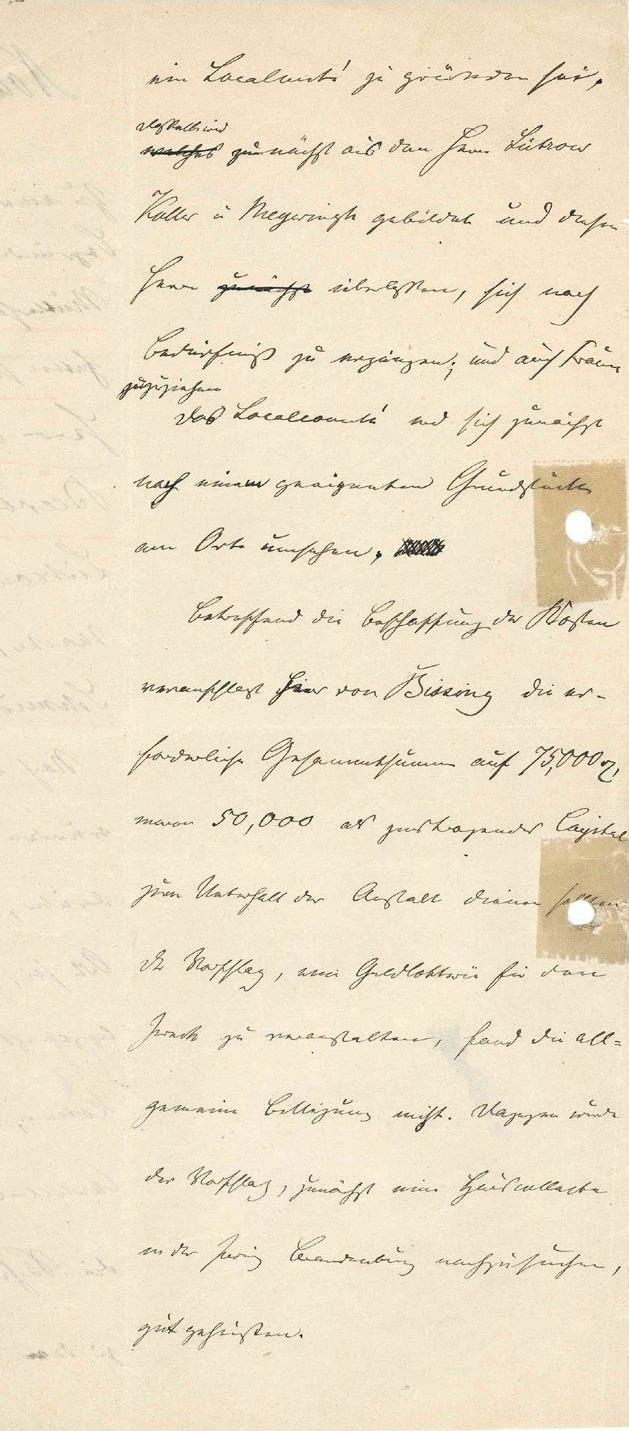 ein Localcomité zu gründen sei,
deshalb wird
welches zunächst aus den Herrn Lützow
Koller u Meyeringh gebildet und diesen
Herrn zunächst überlassen, sich nach
Bedürfniß zu ergänzen; und auch Frauen
zuzuziehen
Das Localcomité wird sich zunächst
nach einem geeigneten Grundstücke
am Orte umsehen.
Betreffend die Beschaffung der Kosten
veranschlagt Herr von Bissing die er-
forderliche Gesammtsumme auf 75,000
wovon 50,000 als zinstragendes Capital
zum Unterhalt der Anstalt dienen sollen
Der Vorschlag, eine Geldlotterie für den
Zweck zu veranstalten, fand die all=
gemeine Billigung nicht. Dagegen wurde
der Vorschlag, zunächst eine Hauscollecte
in der Provinz Brandenburg nachzusuchen,
gut geheißen.